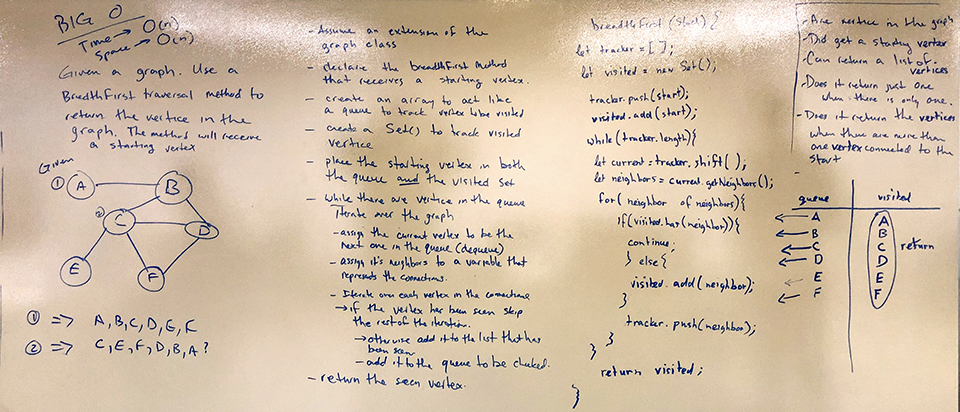 BIG O
Time → O(n)
Space → O(n)
Given a graph. Use a
BredthFirst traversal method to
return the vertice in the
graph. The method will receive
a starting vertex
Given
① A
B
② C
D
E
F
① => A, B, C, D, E, F
② => C, E, F, D, B, A?
- Assume an extension of the
graph class
- declare the breadthFirst Method
that receives a starting vertex.
- create an array to act like
a queue to track vertex to be visited
- create a Set() to track visited
vertice
- place the starting vertex in both
the queue and the visited set
- while there are vertice in the queue
Iterate over the graph
- assign the current vertex to be the
next one in the queue (dequeue)
- assign it's neighbors to a variable that
represents the connections.
- Iterate over each vertex in the connections
→ if the vertex has been seen skip
the rest of the iteration.
→ otherwise add it to the list that has
been seen
- add it to the queue to be checked.
- return the seen vertex.
breadthFirst (start) {
let tracker = [ ];
let visited = new Set();
tracker.push(start);
visited.add(start);
while(tracker.length){
let current = tracker.shift( );
let neighbors = current.getNeighbors();
for( neighbor of neighbors){
if(visited.has(neighbor)){
continue;
} else {
visited.add(neighbor);
}
tracker.push(neighbor);
}
}
return visited;
}
- Are vertice in the graph
- Did get a starting vertex
- Can return a list of
vertices
- Does it return just one
when there is only one.
- Does it return the vertices
when there are more than
one vertex connected to the
start
-
queue visited
← A A
← B B
← C C return
← D D
← E E
← F F